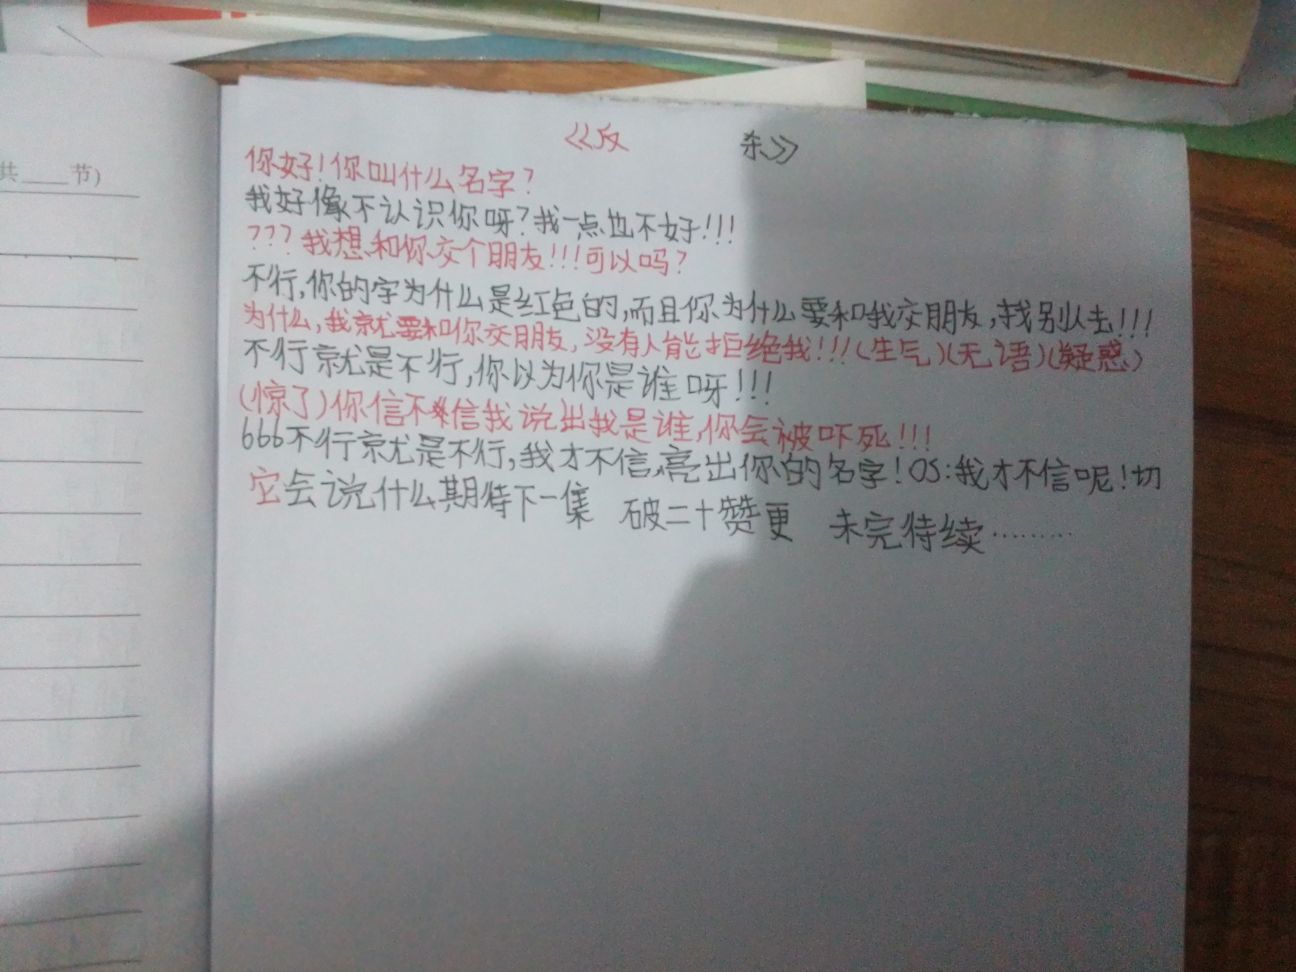 共____节)
《反 杀》
你好!你叫什么名字?
我好像不认识你呀?我一点也不好!!!
???我想和你交个朋友!!!可以吗?
不行,你的字为什么是红色的,而且你为什么要和我交朋友,找别人去!!!
为什么,我就要和你交朋友,没有人能拒绝我!!!(生气)(无语)(疑惑)
不行就是不行,你以为你是谁呀!!!
(惊了)你信不信我说出我是谁,你会被吓死!!!
666不行就是不行,我才不信,亮出你的名字!OS:我才不信呢!切
它会说什么期待下一集 破二十赞更 未完待续………